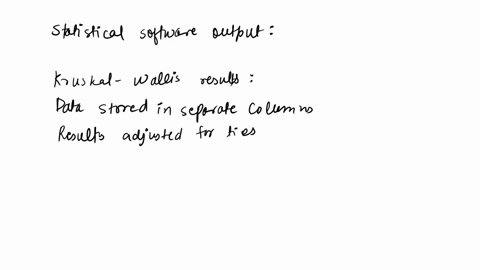 Statistical software output :
Kruskal-Wallis results :
Data stored in separate columns
Results adjusted for ties